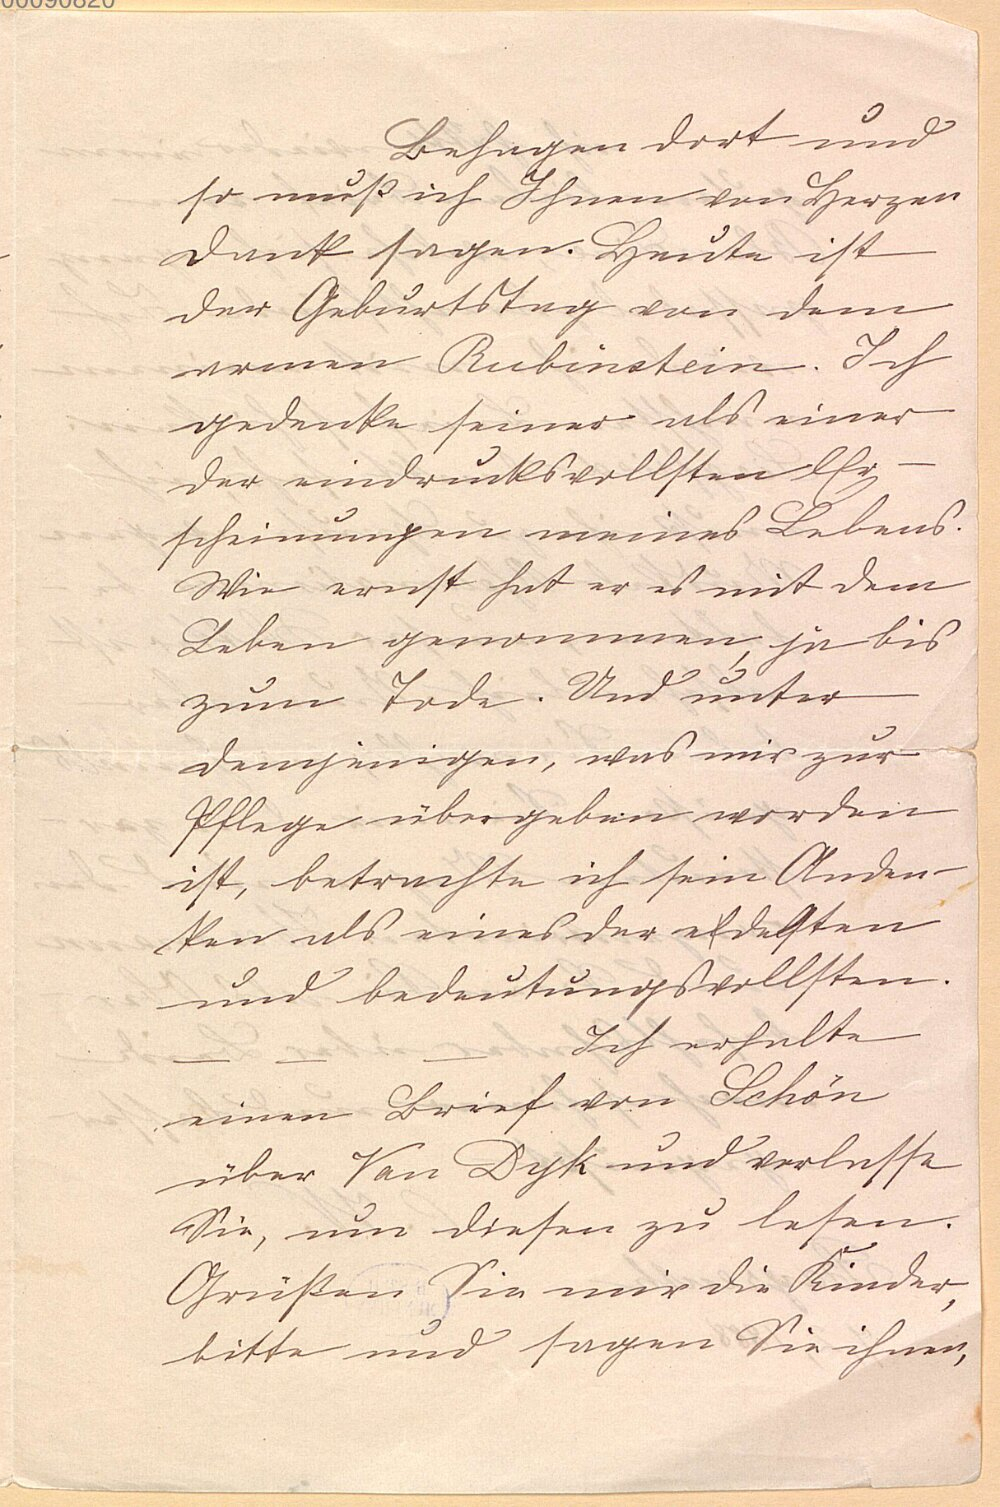 00090820
Behagen dort und
so muß ich Ihnen von Herzen
Dank sagen. Heute ist
der Geburtstag von dem
armen Rubinstein. Ich
gedenke seiner als einer
der eindrucksvollsten Er-
scheinungen meines Lebens.
Wie ernst hat er es mit dem
Leben genommen, ja bis
zum Tode. Und unter
demjenigen, was mir zur
Pflege übergeben worden
ist, betrachte ich sein Anden-
ken als eines der edelsten
und bedeutungsvollsten.
— — — Ich erhalte
einen Brief von Schön
über Van Dyk und verlasse
Sie, um diesen zu lesen.
Grüßen Sie mir die Kinder,
bitte und sagen Sie ihnen,